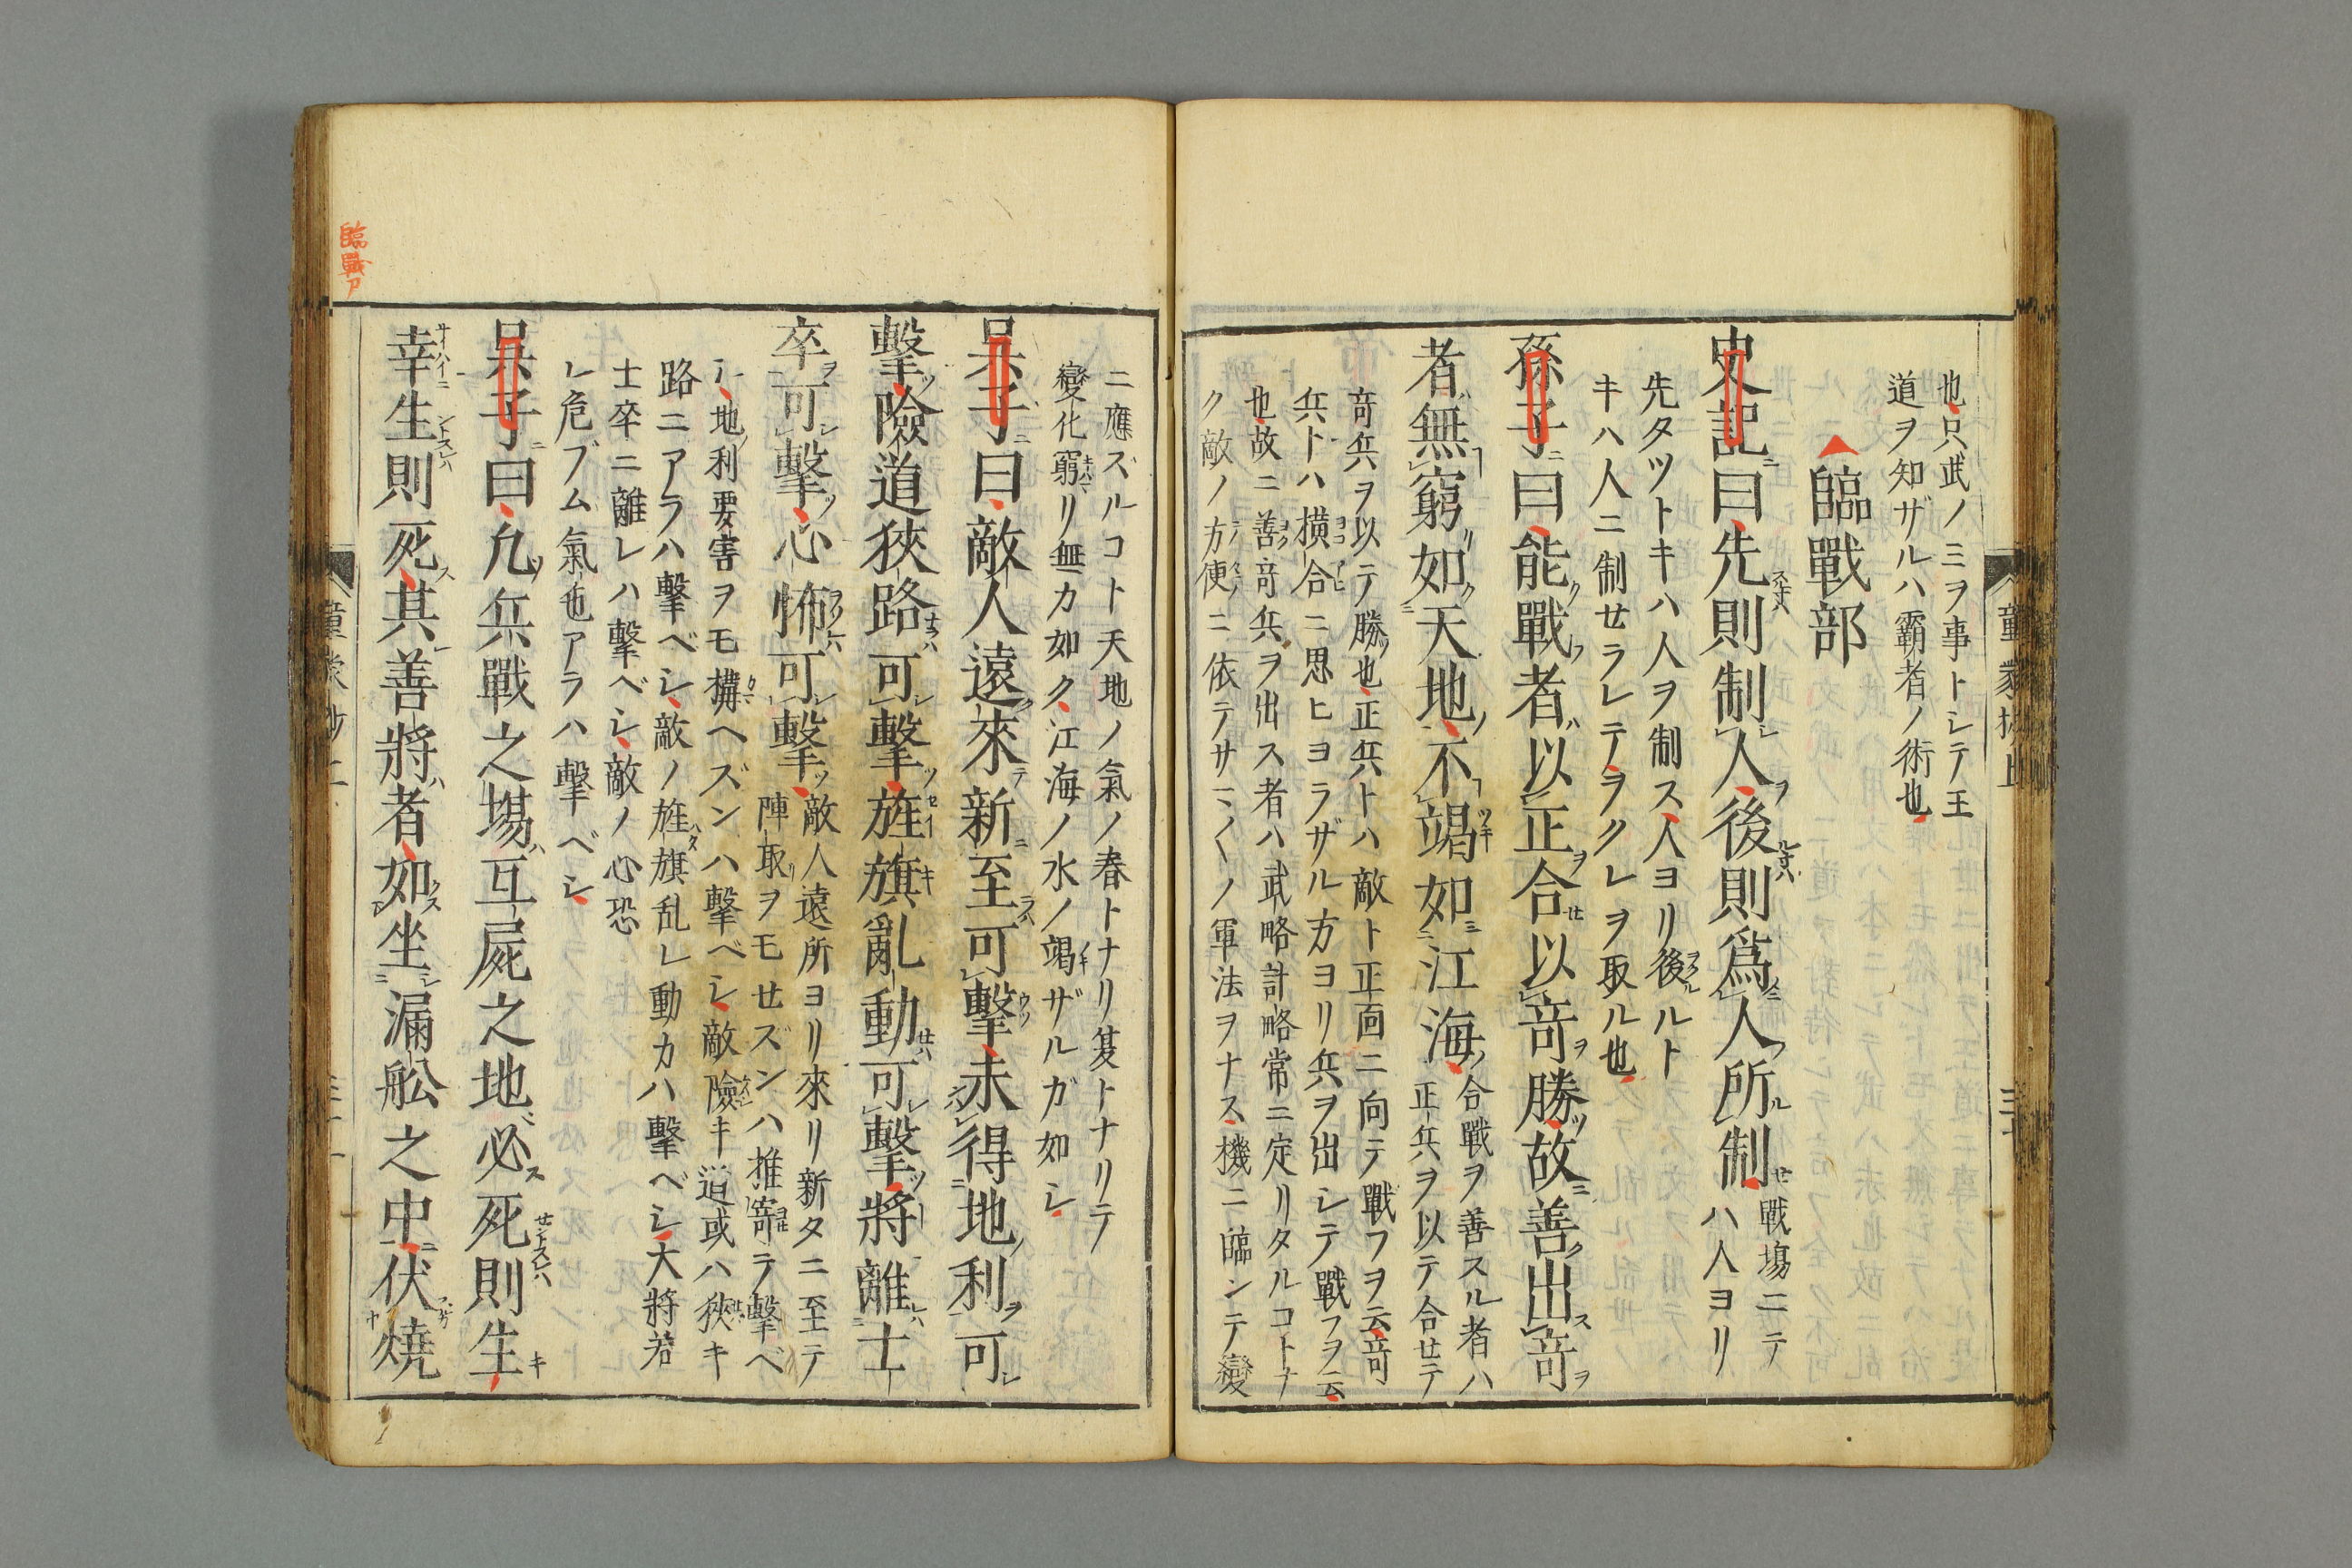 也只武ノミヲ事トシテ王
道ヲ知ザルハ霸者ノ術也
臨戰部
史記曰先則制人後則爲人所制
戰塲ニテ
ハ人ヨリ
先タツトキハ人ヲ制ス人ヨリ後ルト
キハ人ニ制せラレテヲクレヲ取ル也
孫子曰能戰者以正合以竒勝故善出竒
者無窮如天地不竭如江海
合戰ヲ善スル者ハ
正兵ヲ以テ合せテ
竒兵ヲ以テ勝也正兵トハ敵ト正面ニ向テ戰フヲ云竒
兵トハ横合ニ思ヒヨラザル方ヨリ兵ヲ出シテ戰フヲ云
也故ニ善竒兵ヲ出ス者ハ武略計略常ニ定リタルコトナ
ク敵ノ方便ニ依テサマ〱ノ軍法ヲナス機ニ臨ンテ變
ニ應ズルコト天地ノ氣ノ春トナリ夏トナリテ
變化窮リ無カ如ク江海ノ水ノ竭ザルガ如シ
吳子曰敵人遠來新至可擊未得地利可
擊險道狹路可擊旌旗亂動可擊將離士
卒可擊心怖可擊
敵人遠所ヨリ來リ新タニ至テ
陣取ヲモせズンハ推寄テ擊ベ
シ地利要害ヲモ搆ヘズンハ擊ベシ敵險キ道或ハ狹キ
路ニアラハ擊ベシ敵ノ旌旗乱レ動カハ擊ベシ大將若
士卒ニ離レハ擊ベシ敵ノ心恐
レ危ブム氣也アラハ擊ベシ
吳子曰凢兵戰之塲互屍之地必死則生
幸生則死其善將者如坐漏舩之中伏燒
臨戰ア